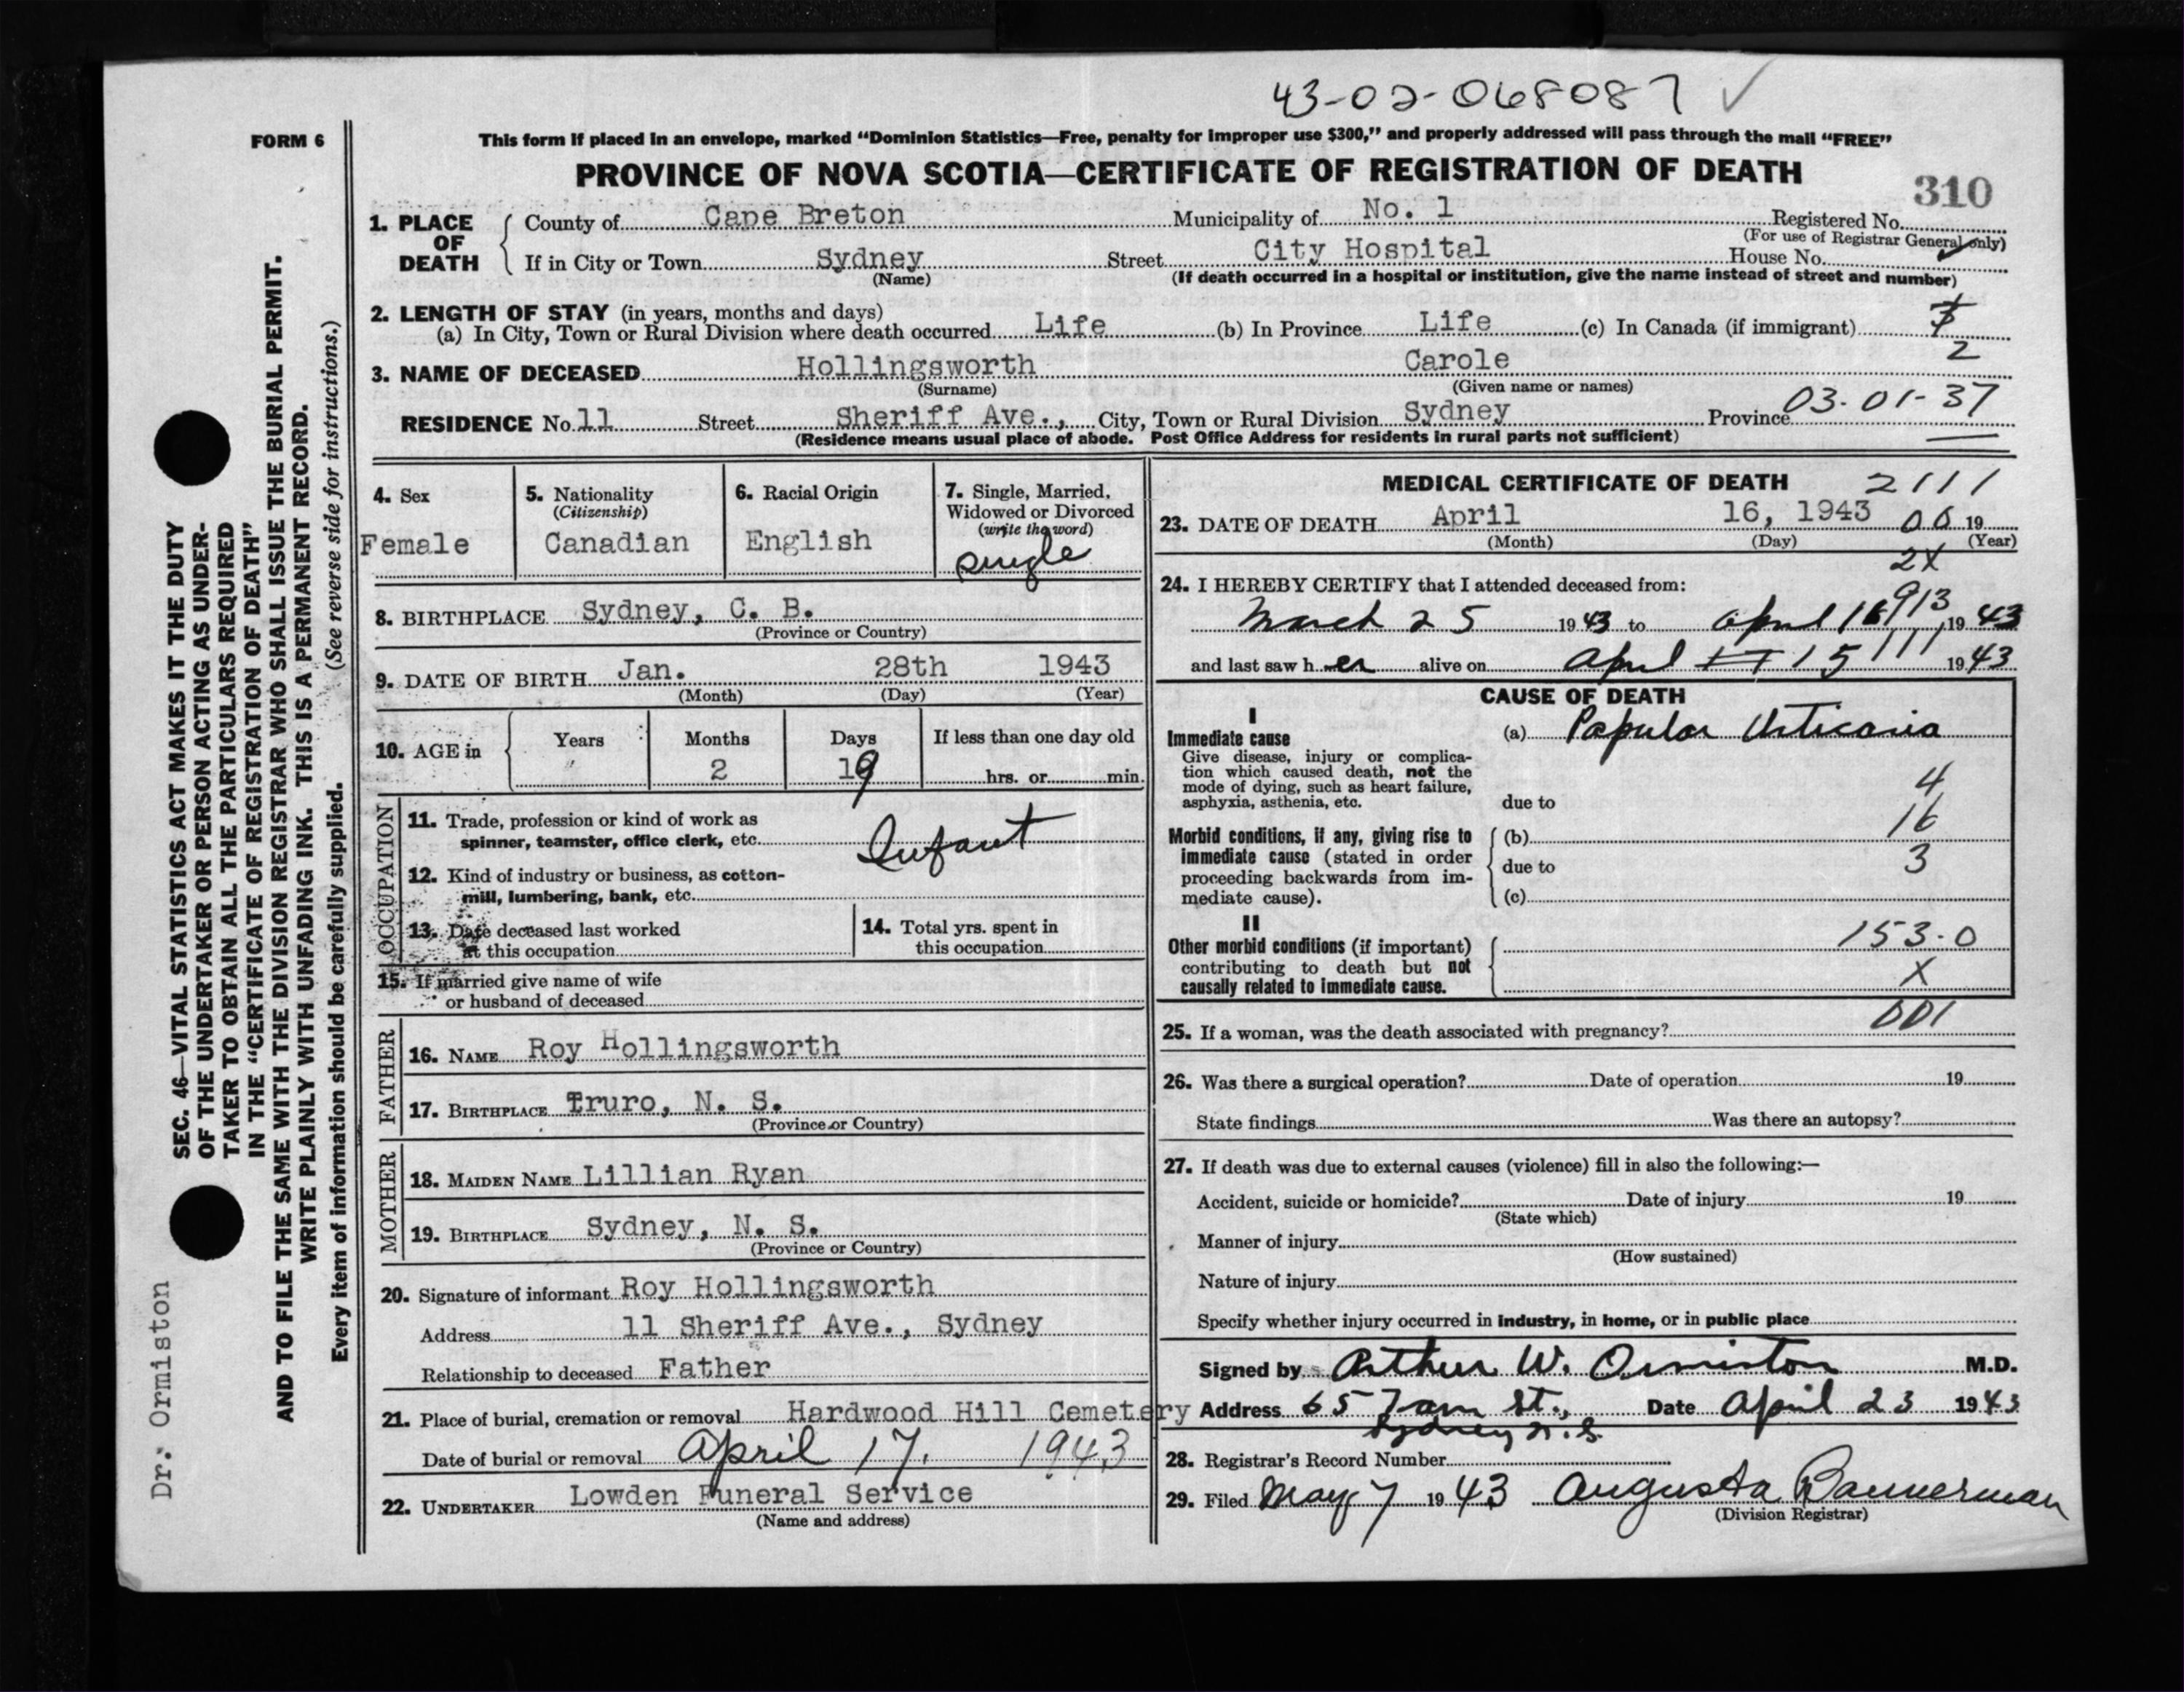 43-02-068087 ✓
FORM 6
This form if placed in an envelope, marked "Dominion Statistics—Free, penalty for improper use $300," and properly addressed will pass through the mail "FREE"
PROVINCE OF NOVA SCOTIA—CERTIFICATE OF REGISTRATION OF DEATH
310
1. PLACE OF DEATH County of Cape Breton Municipality of No. 1 Registered No.
(For use of Registrar General only)
If in City or Town Sydney Street City Hospital House No.
(Name) (If death occurred in a hospital or institution, give the name instead of street and number)
2. LENGTH OF STAY (in years, months and days)
(a) In City, Town or Rural Division where death occurred Life (b) In Province Life (c) In Canada (if immigrant)
2
3. NAME OF DECEASED Hollingsworth Carole
(Surname) (Given name or names)
RESIDENCE No. 11 Street Sheriff Ave., City, Town or Rural Division Sydney Province 03-01-37
(Residence means usual place of abode. Post Office Address for residents in rural parts not sufficient)
4. Sex
Female
5. Nationality
(Citizenship)
Canadian
6. Racial Origin
English
7. Single, Married,
Widowed or Divorced
(write the word)
single
8. BIRTHPLACE Sydney, C. B.
(Province or Country)
9. DATE OF BIRTH Jan. 28th 1943
(Month) (Day) (Year)
10. AGE in Years Months Days If less than one day old
" 2 19 hrs. or min.
OCCUPATION
11. Trade, profession or kind of work as
spinner, teamster, office clerk, etc. Infant
12. Kind of industry or business, as cotton-
mill, lumbering, bank, etc.
13. Date deceased last worked
at this occupation
14. Total yrs. spent in
this occupation
15. If married give name of wife
or husband of deceased
FATHER
16. NAME Roy Hollingsworth
17. BIRTHPLACE Truro, N. S.
(Province or Country)
MOTHER
18. MAIDEN NAME Lillian Ryan
19. BIRTHPLACE Sydney, N. S.
(Province or Country)
20. Signature of informant Roy Hollingsworth
Address 11 Sheriff Ave., Sydney
Relationship to deceased Father
21. Place of burial, cremation or removal Hardwood Hill Cemetery
Date of burial or removal April 17, 1943
22. UNDERTAKER Lowden Funeral Service
(Name and address)
MEDICAL CERTIFICATE OF DEATH 2111
23. DATE OF DEATH April 16, 1943 00 19
(Month) (Day) (Year)
2X
24. I HEREBY CERTIFY that I attended deceased from:
March 25 1943 to April 16 913, 1943
and last saw her alive on April 15 111 1943
CAUSE OF DEATH
I
Immediate cause
Give disease, injury or complica-
tion which caused death, not the
mode of dying, such as heart failure,
asphyxia, asthenia, etc.
(a) Papular Urticaria
4
due to
16
Morbid conditions, if any, giving rise to
immediate cause (stated in order
proceeding backwards from im-
mediate cause).
(b)
due to 3
(c)
II
Other morbid conditions (if important)
contributing to death but not
causally related to immediate cause.
153-0
X
001
25. If a woman, was the death associated with pregnancy?
26. Was there a surgical operation? Date of operation 19
State findings Was there an autopsy?
27. If death was due to external causes (violence) fill in also the following:—
Accident, suicide or homicide? Date of injury 19
(State which)
Manner of injury
(How sustained)
Nature of injury
Specify whether injury occurred in industry, in home, or in public place
Signed by Arthur W. Ormiston M.D.
Address 65 St., Date April 23 1943
Sydney N.S.
28. Registrar's Record Number
29. Filed May 7 1943 Augusta Bannerman
(Division Registrar)
SEC. 46—VITAL STATISTICS ACT MAKES IT THE DUTY
OF THE UNDERTAKER OR PERSON ACTING AS UNDER-
TAKER TO OBTAIN ALL THE PARTICULARS REQUIRED
IN THE "CERTIFICATE OF REGISTRATION OF DEATH"
AND TO FILE THE SAME WITH THE DIVISION REGISTRAR WHO SHALL ISSUE THE BURIAL PERMIT.
WRITE PLAINLY WITH UNFADING INK. THIS IS A PERMANENT RECORD.
Every item of information should be carefully supplied. (See reverse side for instructions.)
Dr. Ormiston